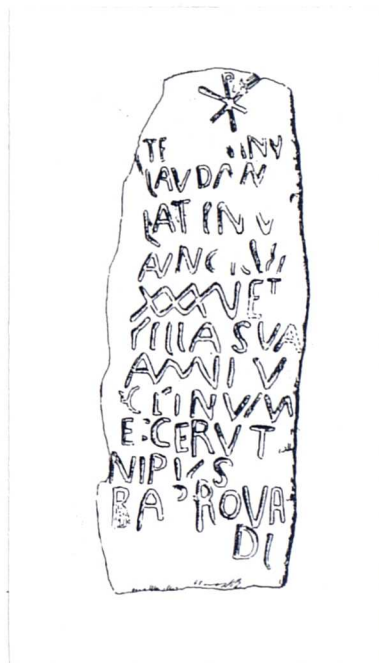 TE INV
LAVDAM
LATINV
XXXVET
FILIA SVA
ANNI V
SINVM
ECERVT
NIPVS
BARROVA
DI